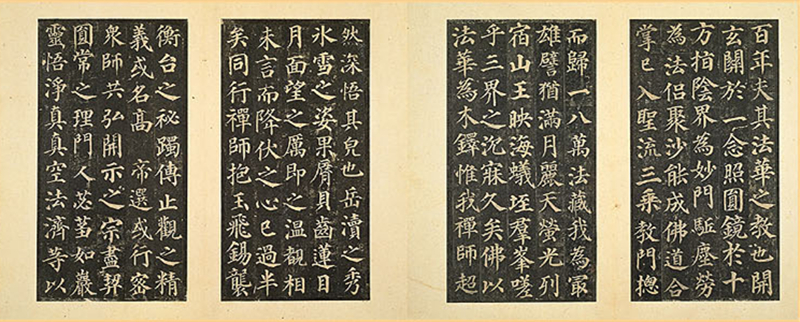 百年夫其法華之教也開
玄關於一念照圓鏡於十
方指陰界為妙門駈塵勞
為法侶聚沙能成佛道合
掌已入聖流三乘教門揔
而歸一八萬法藏我為冣
雄譬猶滿月麗天螢光列
宿山王映海蟻垤羣峯嗟
乎三界之沉寐久矣佛以
法華為木鐸惟我禪師超
然深悟其皃也岳瀆之秀
氷雪之姿果脣貝齒蓮目
月面望之厲即之溫覩相
未言而降伏之心已過半
矣同行禪師抱玉飛錫襲
衡台之祕躅傳止觀之精
義或名高 帝選或行密
衆師共弘開示之宗盡契
圓常之理門人苾蒭如巖
靈悟淨真真空法濟等以